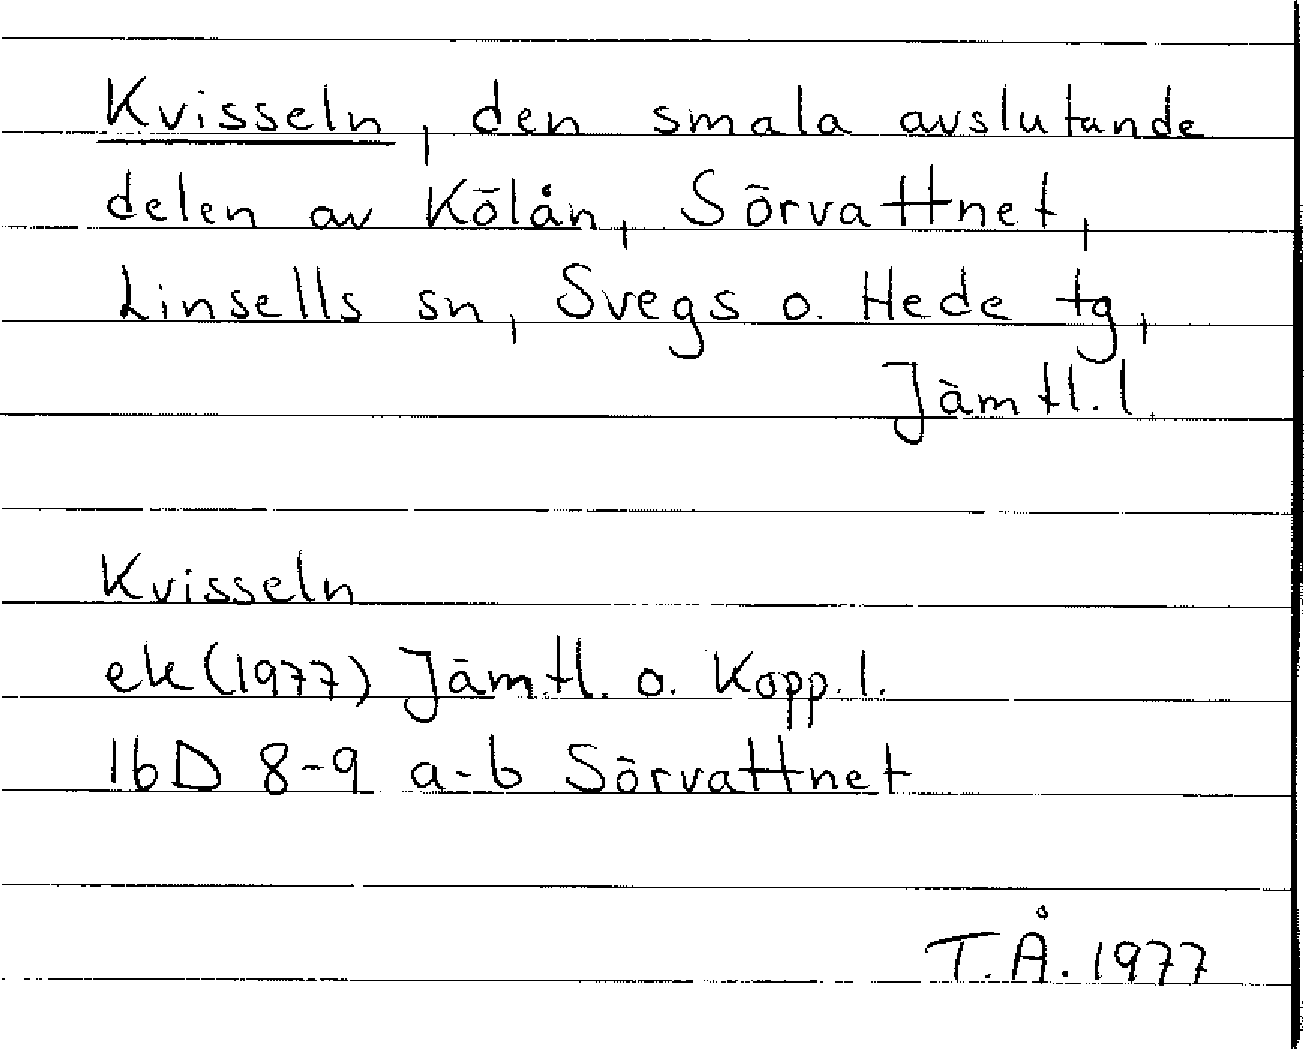 Kvisseln, den smala avslutande
delen av Kölån, Sörvattnet,
Linsells sn, Svegs o. Hede tg,
Jämtl. l.
Kvisseln
ek (1977) Jämtl. o. Kopp. l.
16D 8-9 a-b Sörvattnet
T.Å. 1977